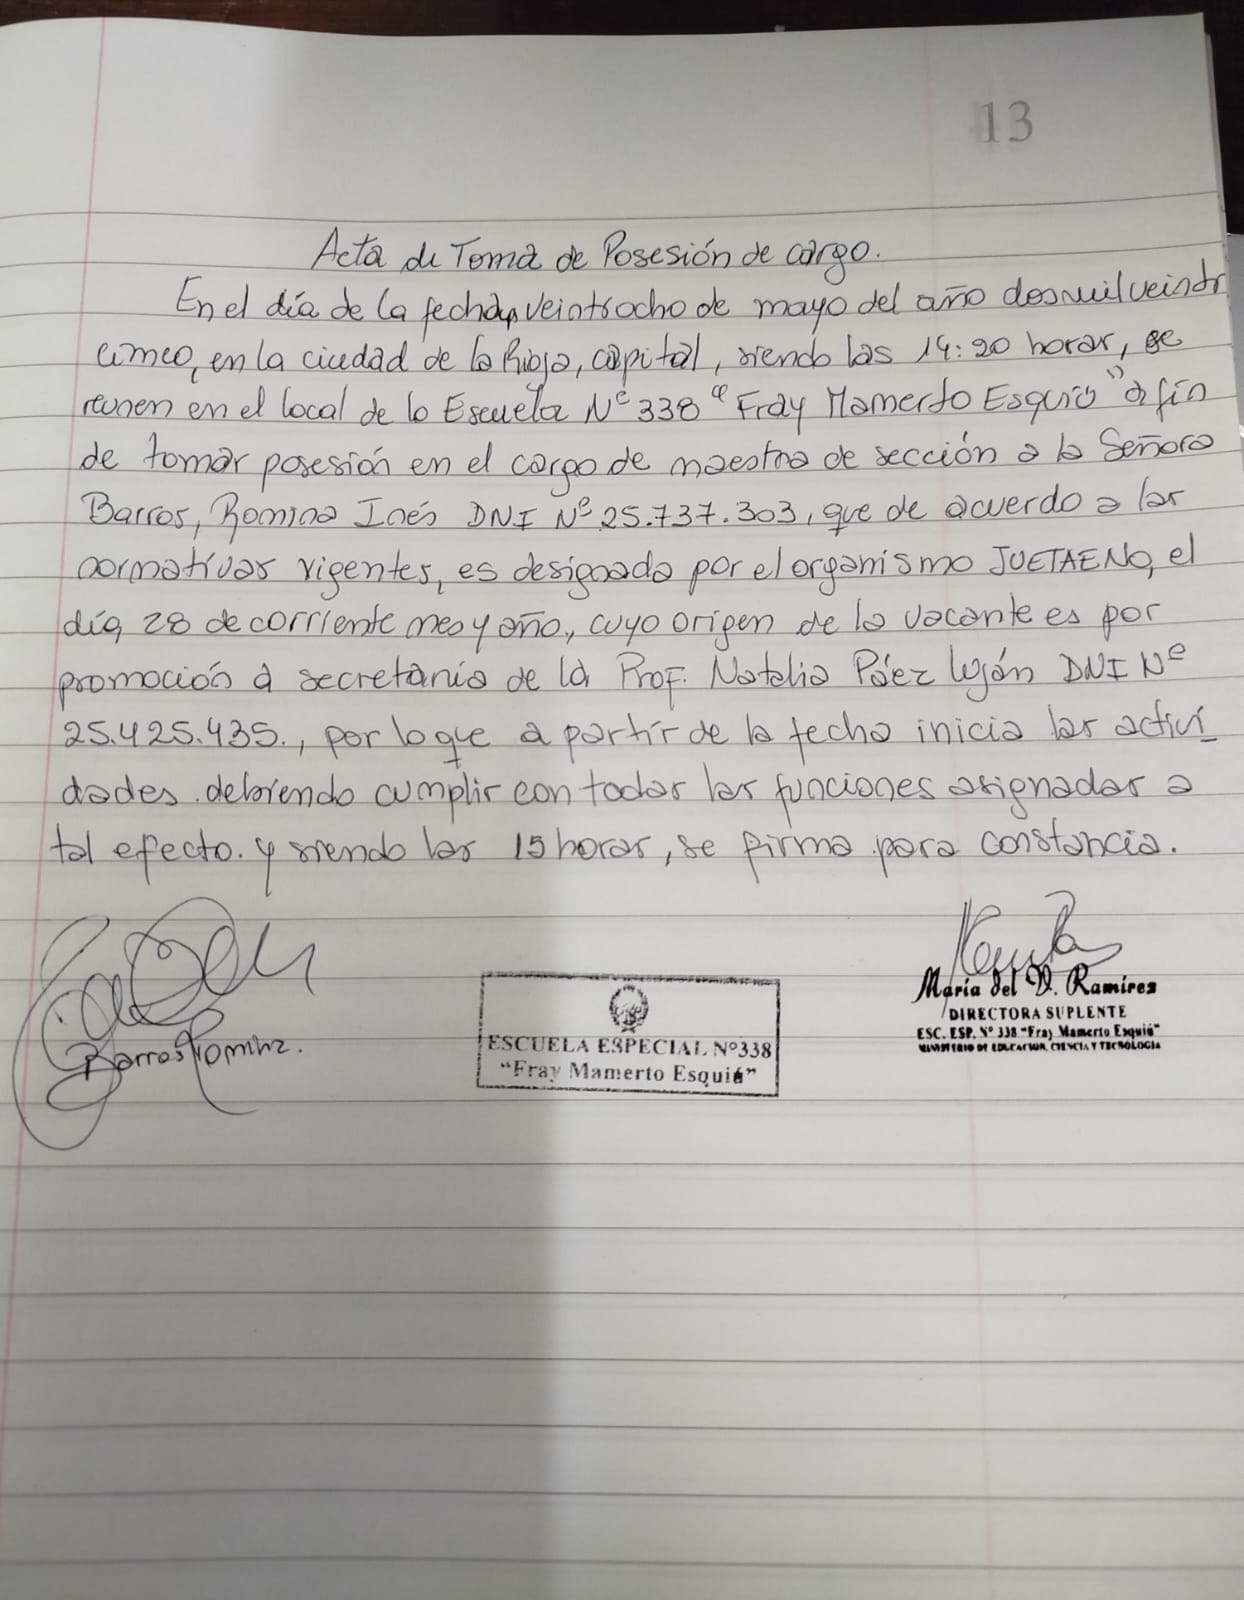 13
Acta de Toma de Posesión de cargo.
En el día de la fecha, veintiocho de mayo del año dos mil veinti
cinco, en la ciudad de la Rioja, capital, siendo las 14:20 horas, se
reunen en el local de la Escuela Nº 338 "Fray Mamerto Esquiú" a fin
de tomar posesión en el cargo de maestra de sección a la Señora
Barros, Romina Inés DNI Nº 25.737.303, que de acuerdo a las
normativas vigentes, es designada por el organismo JUETAENO, el
día, 28 de corriente mes y año, cuyo origen de la vacante es por
promoción a secretaría de la Prof. Natalia Páez Luján DNI Nº
25.425.435., por lo que a partir de la fecha inicia las activi
dades. debiendo cumplir con todas las funciones asignadas a
tal efecto. y siendo las 15 horas, se firma para constancia.
Barros Romina.
ESCUELA ESPECIAL Nº338
"Fray Mamerto Esquiú"
María del V. Ramires
DIRECTORA SUPLENTE
ESC. ESP. Nº 338 "Fray Mamerto Esquiú"
MINISTERIO DE EDUCACION, CIENCIA Y TECNOLOGIA